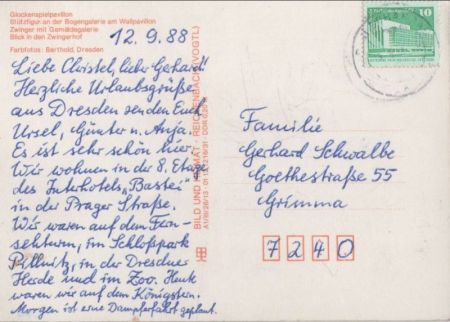 Glockenspielpavillon
Stützfigur an der Bogengalerie am Wallpavillon
Zwinger mit Gemäldegalerie
Blick in den Zwingerhof
Farbfotos: Barthold, Dresden
12.9.88
Liebe Christel, lieber Gerhard!
Herzliche Urlaubsgrüße
aus Dresden senden Euch
Ursel, Günter u. Anja.
Es ist sehr schön hier.
Wir wohnen in der 8. Etage
des Interhotels „Bastei"
in der Prager Straße.
Wir waren auf dem Fern-
sehturm, im Schloßpark
Pillnitz, in der Dresdner
Heide und im Zoo. Heute
waren wir auf dem Königstein.
Morgen ist eine Dampferfahrt geplant.
BILD UND HEIMAT · REICHENBACH (VOGTL)
10
Familie
Gerhard Schwalbe
Goethestraße 55
Grimma
7240